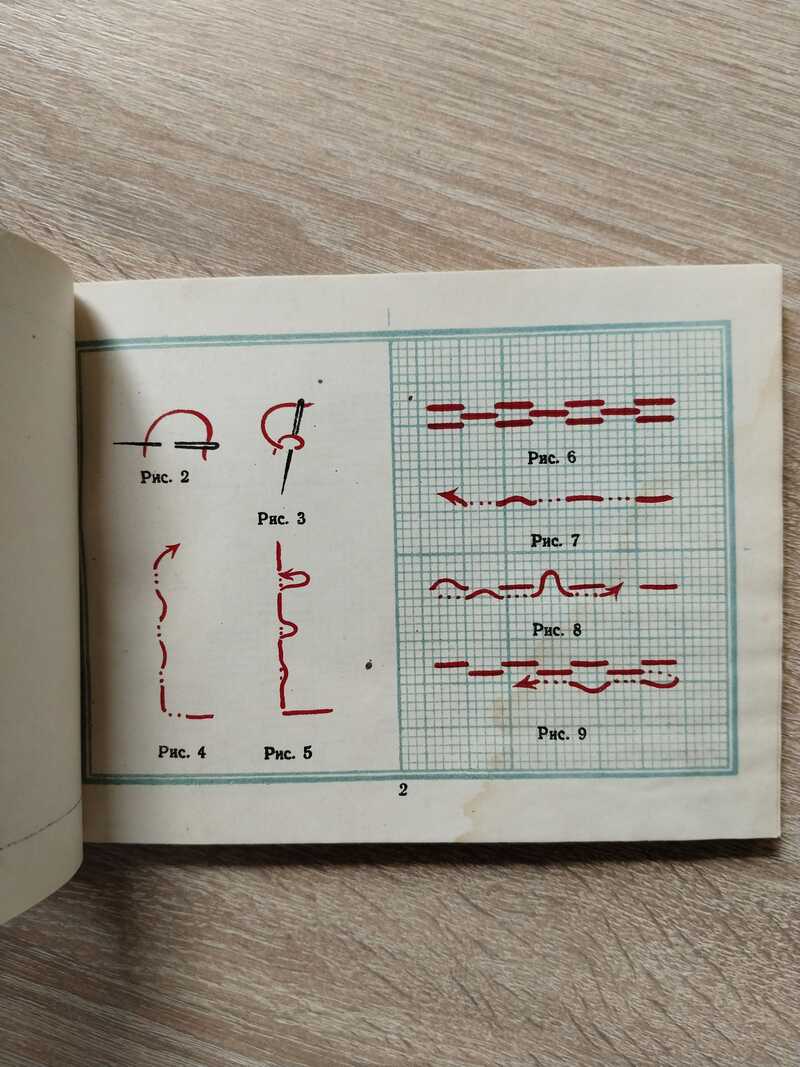 Рис. 2
Рис. 3
Рис. 4
Рис. 5
Рис. 6
Рис. 7
Рис. 8
Рис. 9
2